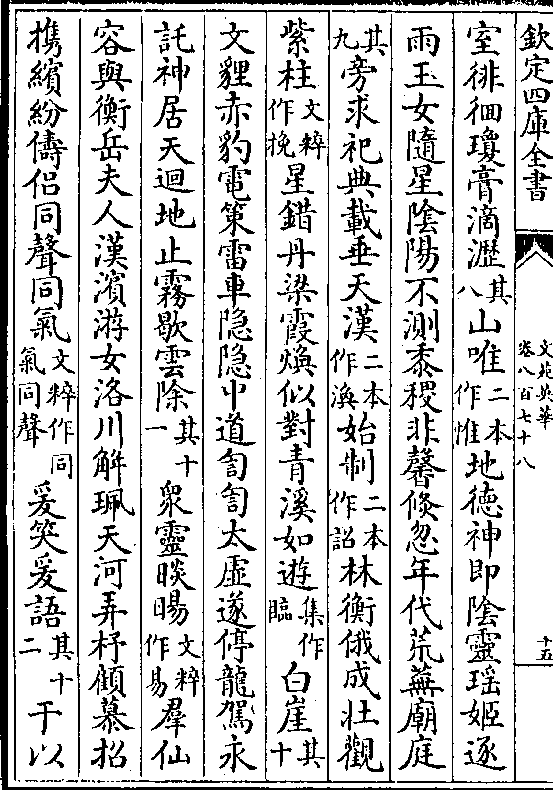 欽定四庫全書
文苑英華
卷八百七十八
十五
室徘徊瓊膏滴瀝其八山唯二本作惟地德神即陰靈瑶姬逐
雨玉女隨星陰陽不測黍稷非馨倐忽年代荒蕪廟庭
其九旁求祀典載垂天漢二本作渙始制二本作詔林衡俄成壯觀
紫柱文粹作挽星錯丹梁霞煥似對青溪如遊集作臨白崖其十
文貍赤豹電策雷車隐隐中道訇訇太虛遂停龍駕永
託神居天迴地止霧歇雲除其十一衆靈睒暘文粹作易羣仙
容與衡岳夫人漢濱游女洛川解珮天河弄杼顧慕招
携繽紛儔侣同聲同氣文粹作同氣同聲爰笑爰語其十二于以